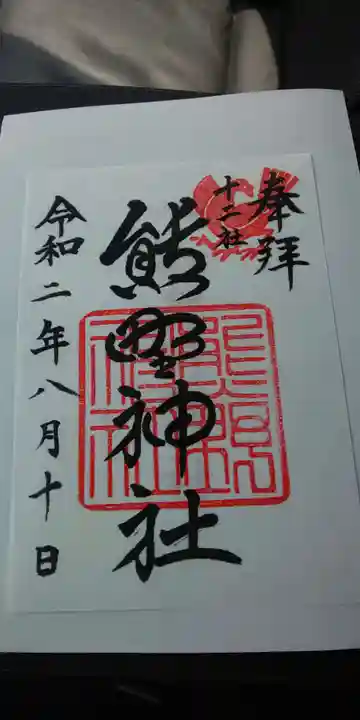 奉拝
十二社
熊野神社
令和二年八月十日
熊野
神社